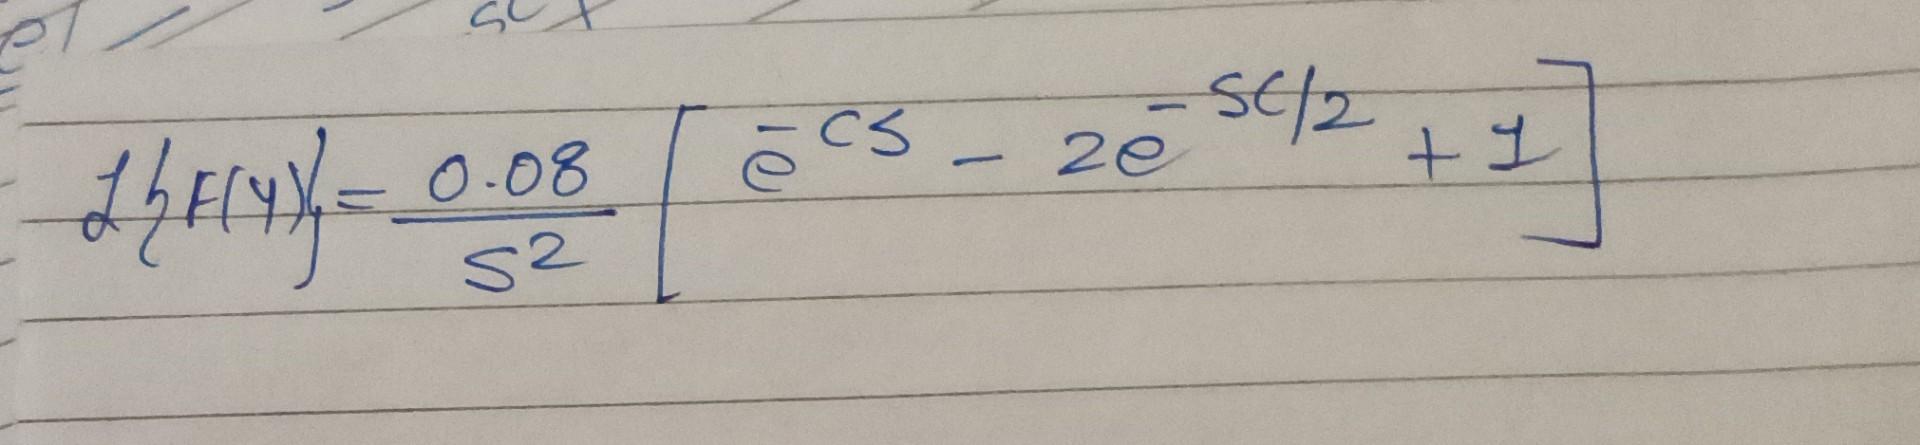 L{F(y)} = 0.08/s² [e^-cs - 2e^-sc/2 + 1]